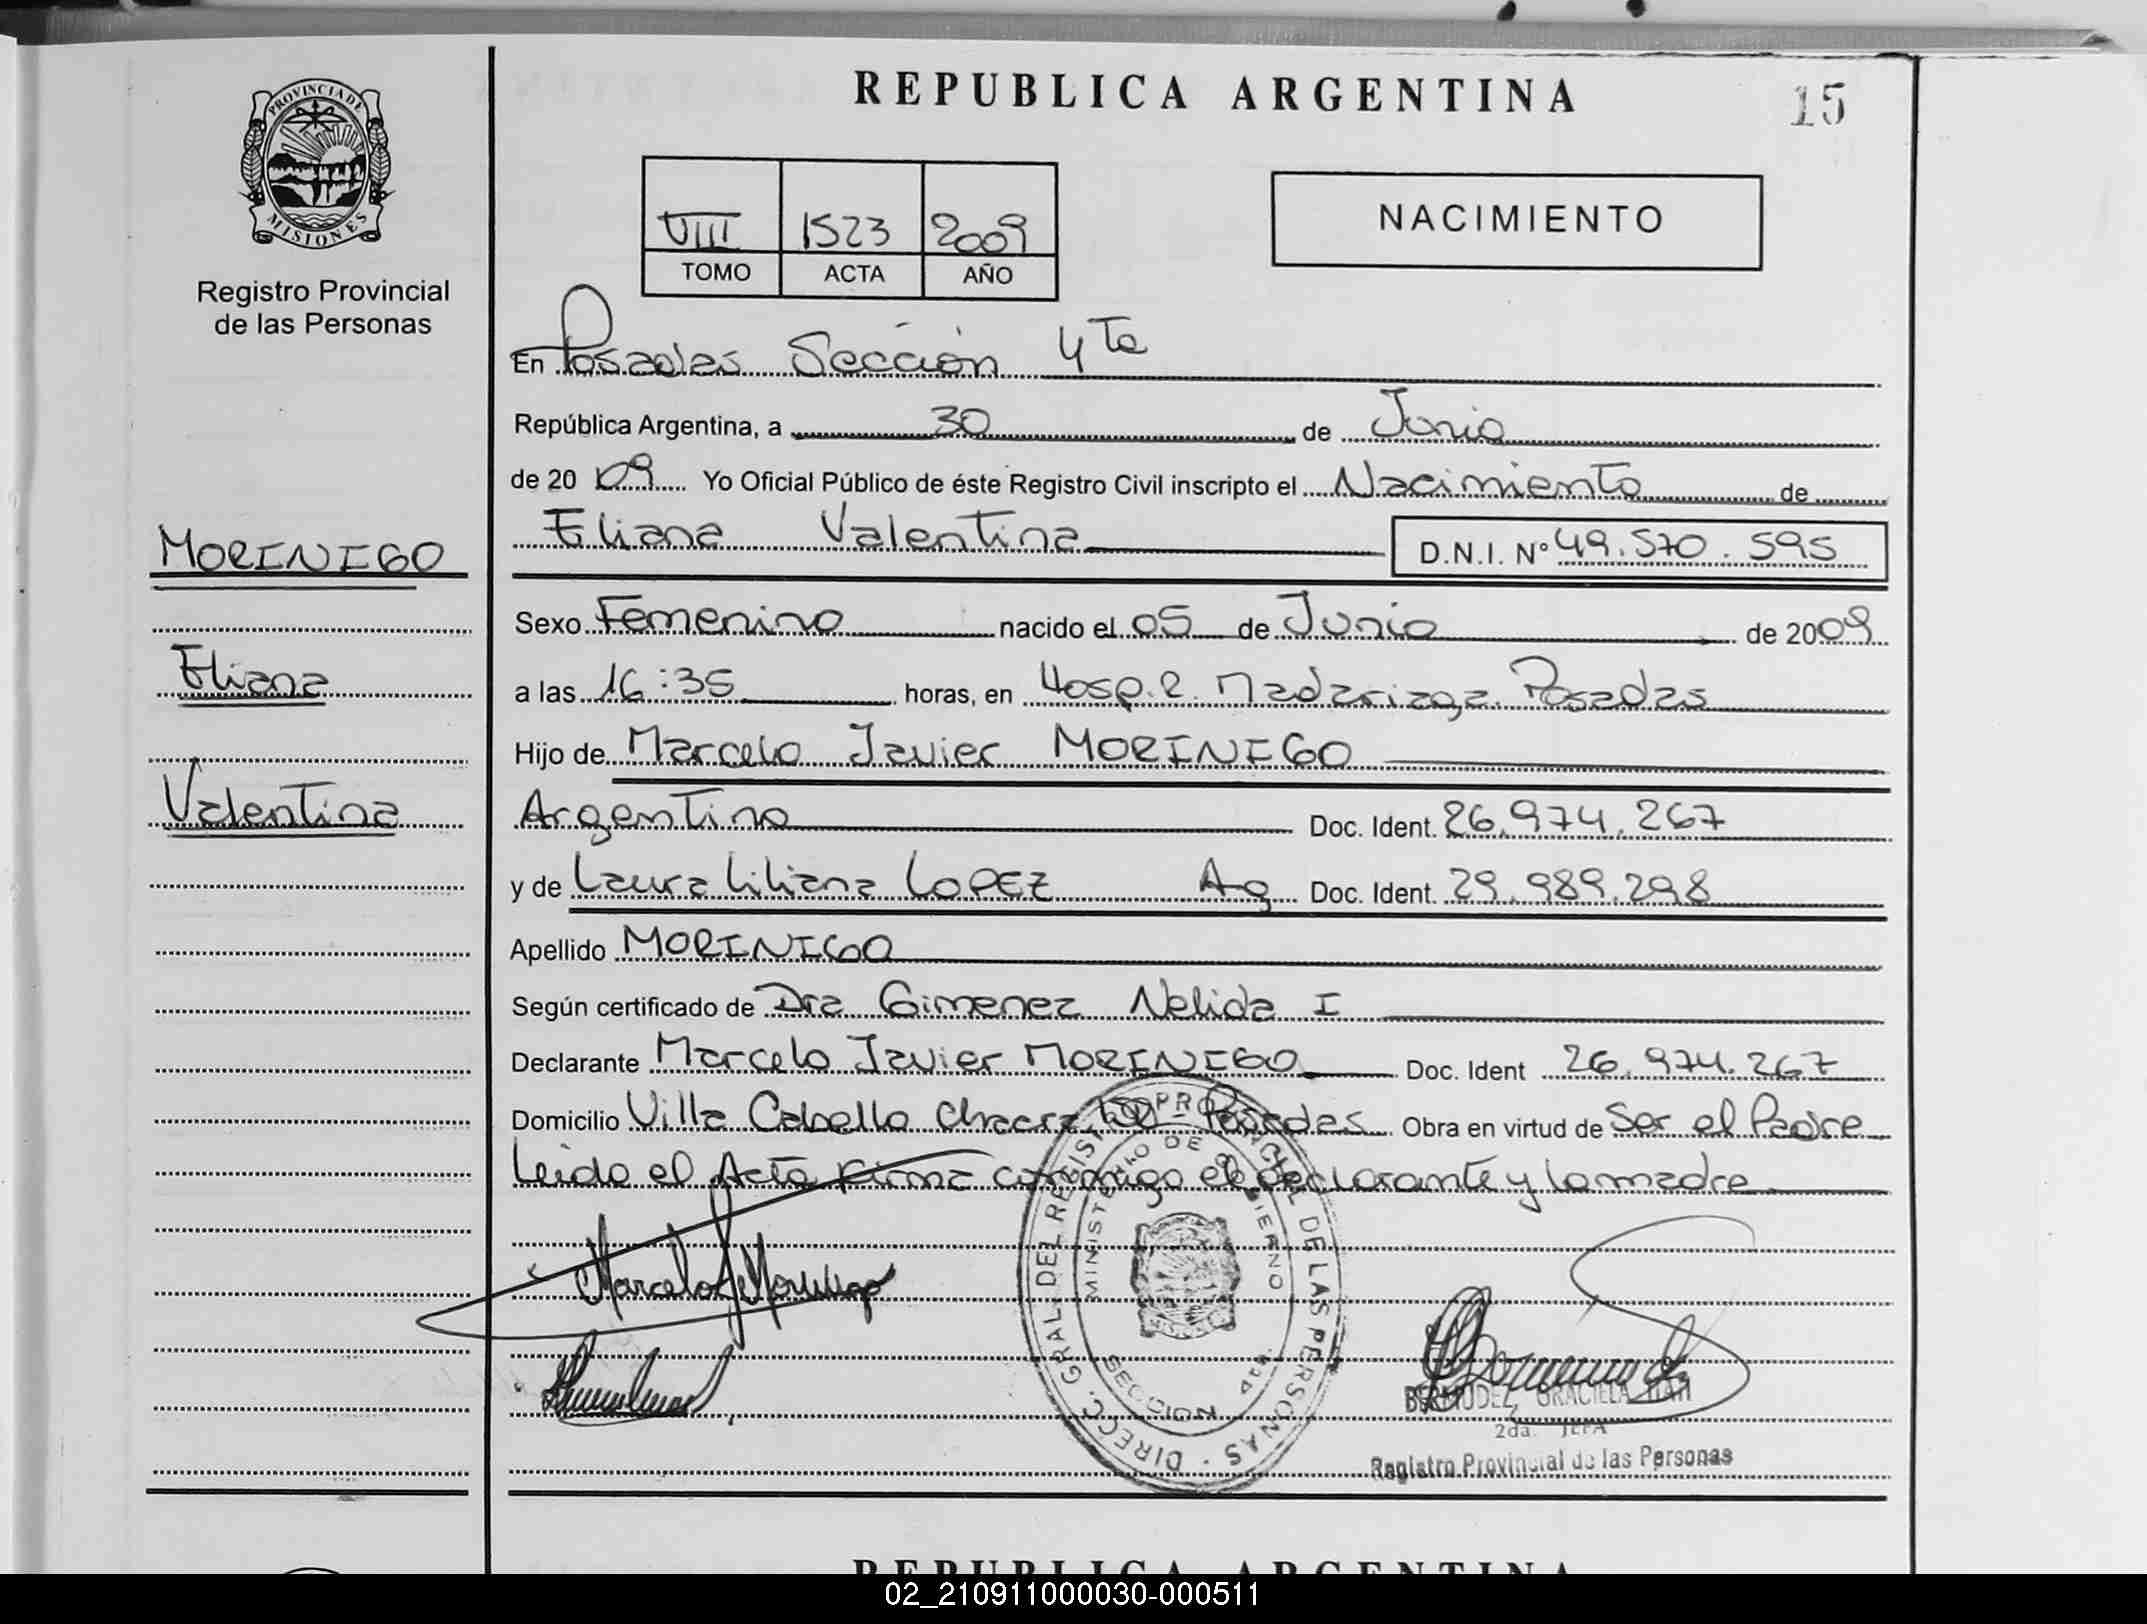 REPUBLICA ARGENTINA
15
PROVINCIA DE
MISIONES
Registro Provincial
de las Personas
VIII 1523 2009
TOMO ACTA AÑO
NACIMIENTO
En Posadas Sección 4ta
República Argentina, a 30 de Junio
de 20 09 Yo Oficial Público de éste Registro Civil inscripto el Nacimiento de
Eliana Valentina D.N.I. Nº 49.570.595
MORINIGO
Eliana
Valentina
Sexo Femenino nacido el 05 de Junio de 2009
a las 16:35 horas, en Hosp. R. Madariaga Posadas
Hijo de Marcelo Javier MORINIGO
Argentino Doc. Ident. 26.974.267
y de Laura Liliana LOPEZ Ag Doc. Ident. 29.989.298
Apellido MORINIGO
Según certificado de Dra Gimenez Nelida I
Declarante Marcelo Javier MORINIGO Doc. Ident 26.974.267
Domicilio Villa Cabello Chacra Posadas Obra en virtud de Ser el Padre
Leido el Acta Firma conmigo el declarante y la madre
Marcelo J Morinigo
DIRECC. GRAL. DEL REGISTRO PROVINCIAL DE LAS PERSONAS
MINISTERIO DE GOBIERNO
SECCION 4ta
BERMUDEZ, GRACIELA
2da. JEFA
Registro Provincial de las Personas
REPUBLICA ARGENTINA
02_210911000030-000511